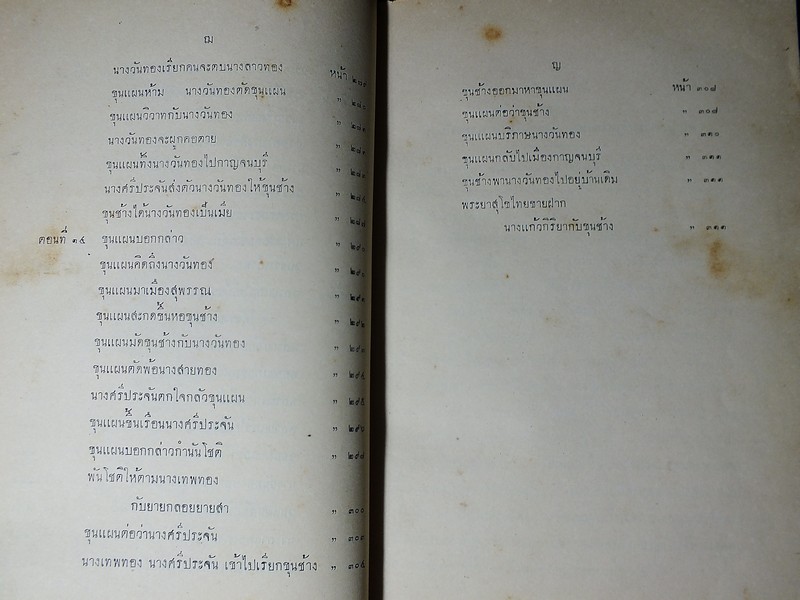 ฌ
นางวันทองเรียกคนจะตบนางลาวทอง หน้า
ขุนแผนห้าม นางวันทองตัดขุนแผน "
ขุนแผนวิวาทกับนางวันทอง "
นางวันทองจะผูกคอตาย "
ขุนแผนทิ้งนางวันทองไปกาญจนบุรี "
นางศรีประจันส่งตัวนางวันทองให้ขุนช้าง "
ขุนช้างได้นางวันทองเป็นเมีย "
ตอนที่ ๑๕ ขุนแผนบอกกล่าว "
ขุนแผนคิดถึงนางวันทอง "
ขุนแผนมาเมืองสุพรรณ "
ขุนแผนสะกดขึ้นหอขุนช้าง " ๒๙๒
ขุนแผนมัดขุนช้างกับนางวันทอง "
ขุนแผนตัดพ้อนางสายทอง "
นางศรีประจันตกใจกลัวขุนแผน " ๒๙๕
ขุนแผนขึ้นเรือนนางศรีประจัน " ๒๙๖
ขุนแผนบอกกล่าวกำนันโชติ " ๒๙๗
พันโชติให้ตามนางเทพทอง
กับยายกลอยยายสา " ๓๐๐
ขุนแผนต่อว่านางศรีประจัน "
นางเทพทอง นางศรีประจัน เข้าไปเรียกขุนช้าง " ๓๐๕
ญ
ขุนช้างออกมาหาขุนแผน หน้า ๓๐๘
ขุนแผนต่อว่าขุนช้าง " ๓๐๘
ขุนแผนบริภาษนางวันทอง " ๓๑๐
ขุนแผนกลับไปเมืองกาญจนบุรี " ๓๑๑
ขุนช้างพานางวันทองไปอยู่บ้านเดิม " ๓๑๑
พระยาสุโขไทยขายฝาก
นางแก้วกิริยากับขุนช้าง " ๓๑๑